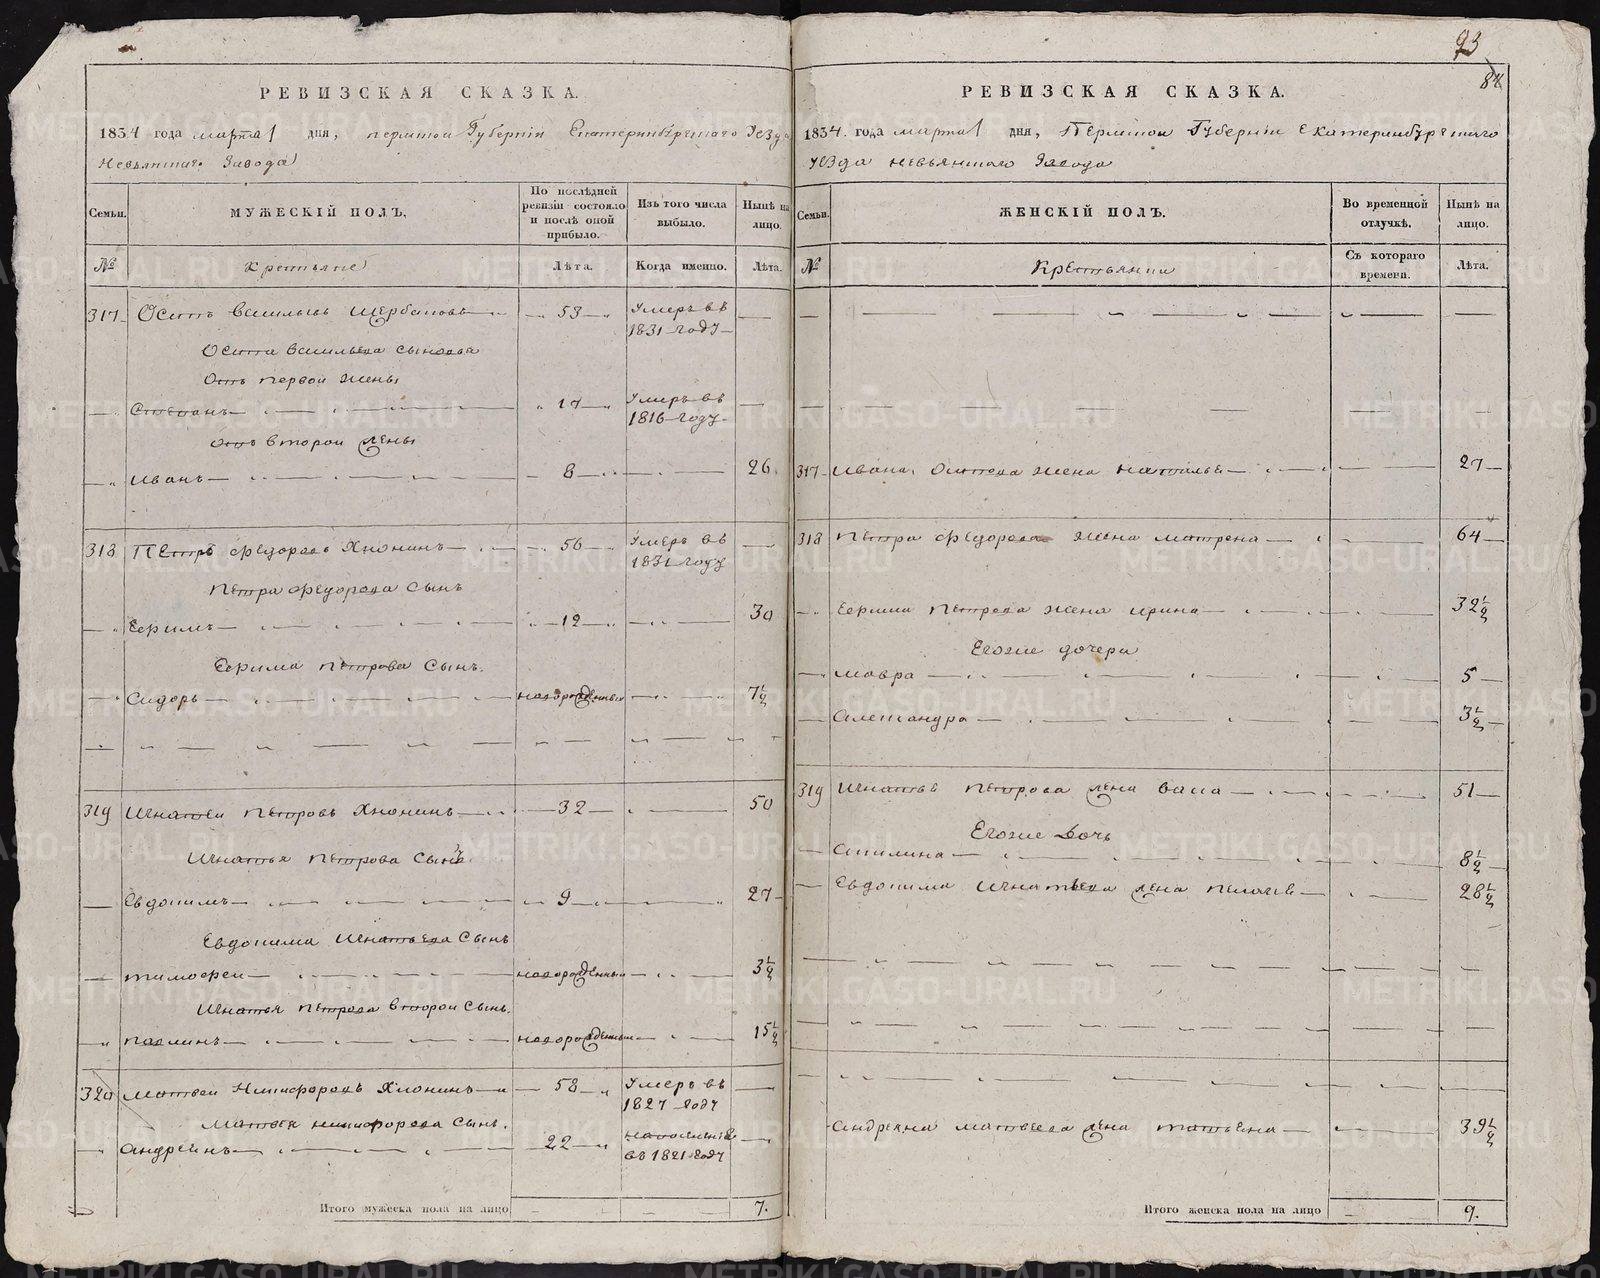 93
84
РЕВИЗСКАЯ СКАЗКА.
1834 года марта 1 дня, пермской Губернии Екатеринбургскаго Уезда
Невьянскаго Завода
Семьи.
МУЖЕСКІЙ ПОЛЪ,
По послѣдней ревизіи состояло и послѣ оной прибыло.
Изъ того числа выбыло.
Нынѣ на лицо.
№
Крестьяне
Лѣта.
Когда именно.
Лѣта.
317 Осипъ васильевъ Щербаковъ 53 Умеръ въ
1831 году
Осипа васильева сыновья
Отъ первой жены
Степанъ 17 Умеръ въ
1816 году
отъ второй жены
Иванъ 8 26
318 Петръ федоровъ Хионинъ 56 Умеръ въ
1831 году
Петра федорова сынъ
Ефимъ 12 30
Ефима петрова сынъ
Сидоръ новорожденный 7½
319 Игнатей Петровъ Хионинъ 32 50
Игнатья Петрова сынъ
Евдокимъ 9 27
Евдокима Игнатьева сынъ
тимофей новорожденный 3½
Игнатья Петрова второй сынъ
павлинъ новорожденный 15½
320 матвей Никифоровъ Хионинъ 58 Умеръ въ
1827 году
матвея никифорова сынъ
андреянъ 22
въ 1821 году
Итого мужеска пола на лицо 7.
РЕВИЗСКАЯ СКАЗКА.
1834 года марта 1 дня, Пермской Губерніи Екатеринбургскаго
уезда невьянскаго Завода
Семьи.
ЖЕНСКІЙ ПОЛЪ.
Во временной отлучкѣ.
Нынѣ на лицо.
№
Крестьянки
Съ котораго времени.
Лѣта.
317 ивана Осипова жена наталья 27
318 петра федорова жена матрена 64
Ефима Петрова жена ирина 32½
Егоже дочери
мавра 5
александра 3½
319 Игнатья Петрова жена васа 51
Егоже дочь
акилина 8½
Евдокима Игнатьева жена пелагея 28½
андреяна матвеева жена татьяна 39½
Итого женска пола на лицо 9.
METRIKI.GASO-URAL.RU